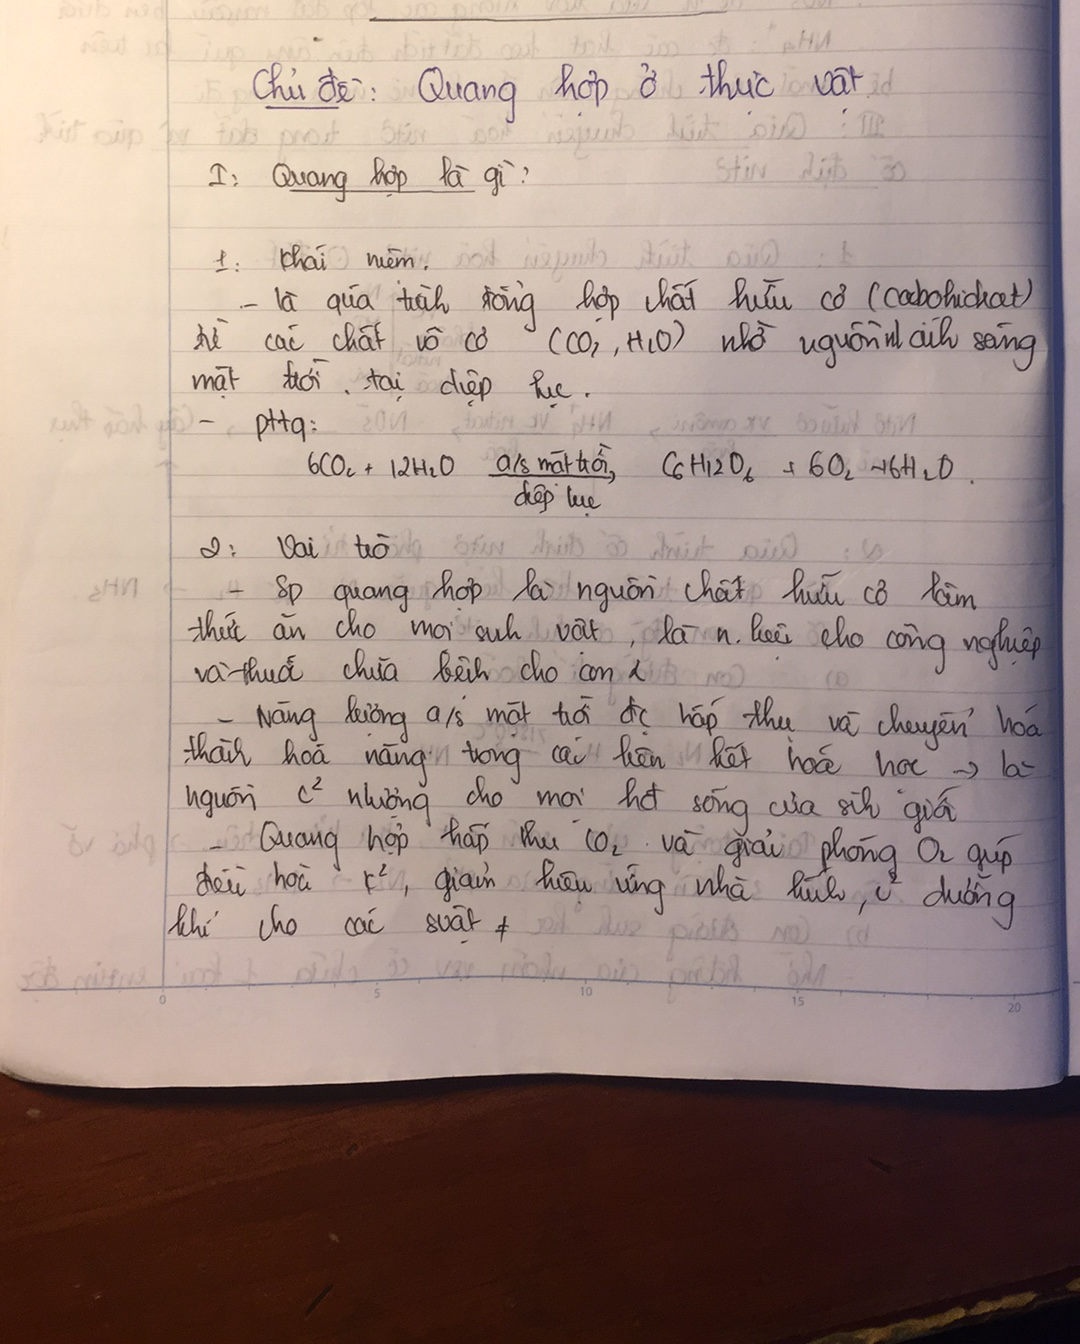 Chủ đề: Quang hợp ở thực vật
I: Quang hợp là gì?
1: Khái niệm.
- là quá trình tổng hợp chất hữu cơ (cacbohiđrat)
từ các chất vô cơ (CO2, H2O) nhờ nguồn nl ánh sáng
mặt trời. tại diệp lục.
- pttq:
6CO2 + 12H2O a/s mặt trời, C6H12O6 + 6O2 + 6H2O.
diệp lục
2: Vai trò
- Sp quang hợp là nguồn chất hữu cơ làm
thức ăn cho mọi sinh vật, là n. liệu cho công nghiệp
và thuốc chữa bệnh cho con
- Năng lượng a/s mặt trời đc hấp thụ và chuyển hoá
thành hoá năng trong các liên kết hoá học → là
nguồn c² nhượng cho mọi hđ sống của sinh giới
- Quang hợp hấp thu CO2 và giải phóng O2 giúp
điều hoà k², giảm hiệu ứng nhà kính, c² dưỡng
khí cho các svật ≠